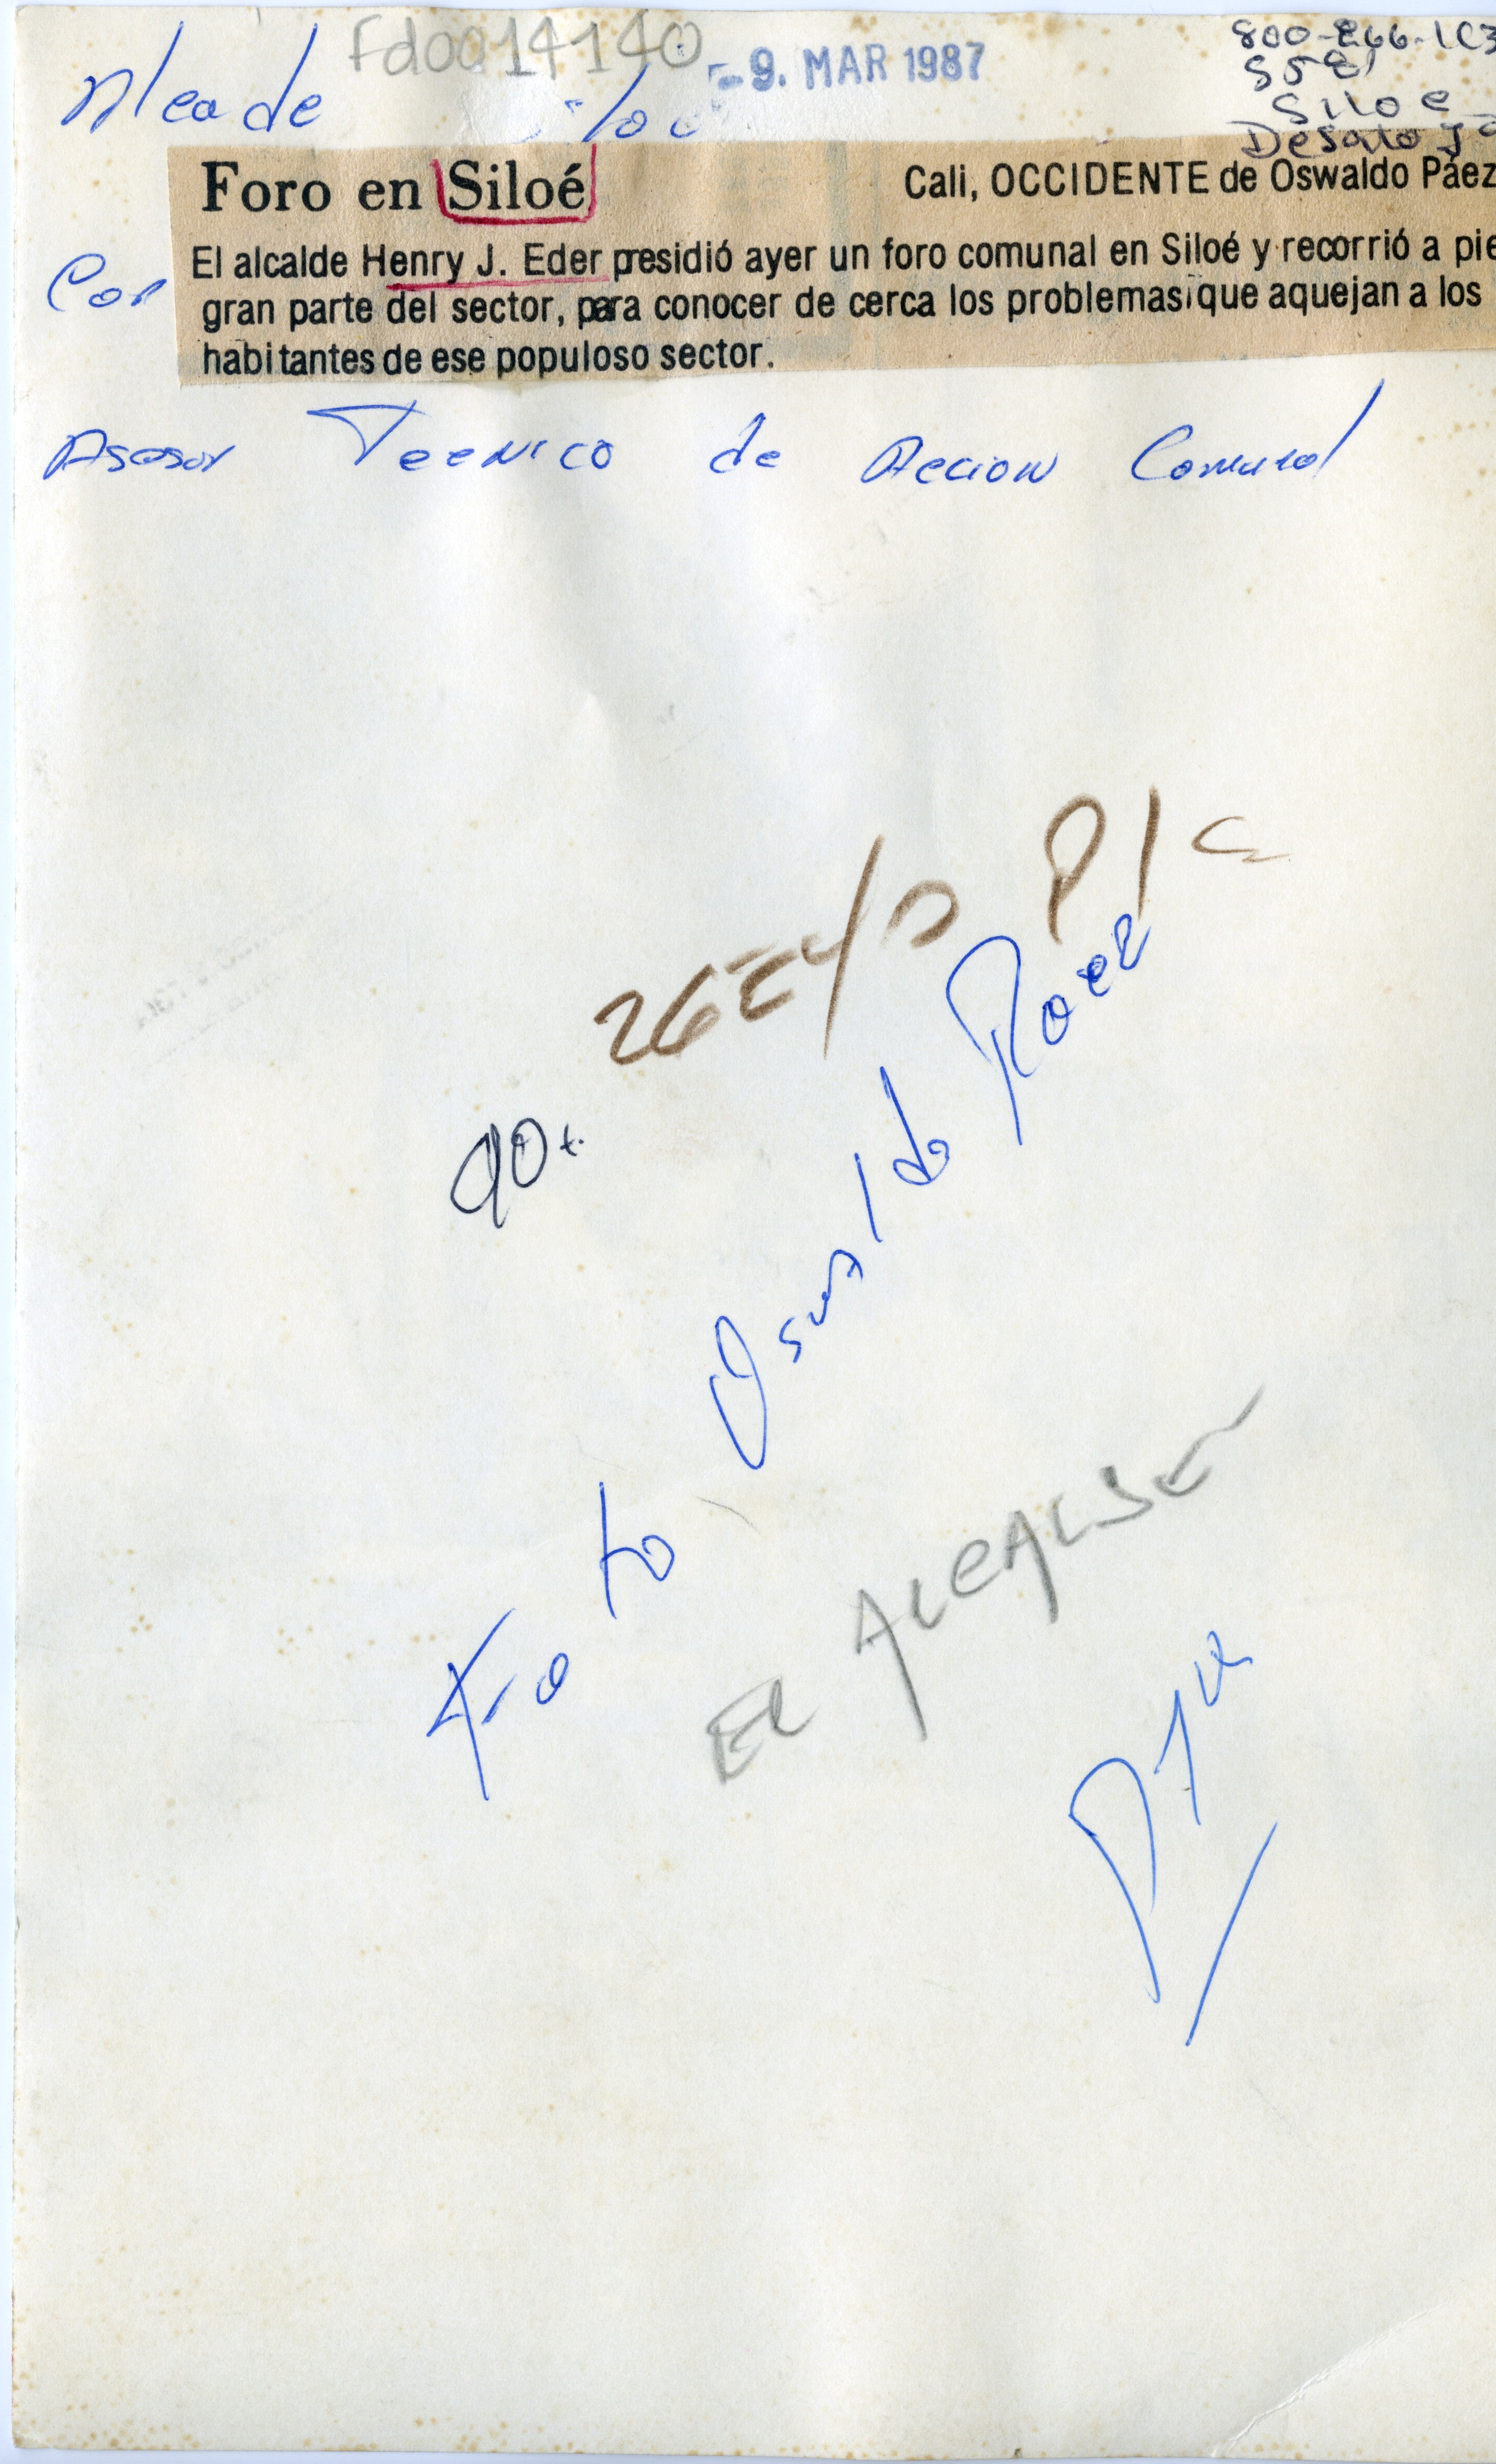 Fd0014140
-9. MAR 1987
800-266-103
S5e1
Siloe
Desaloja
Alcade
Foro en Siloé
Cali, OCCIDENTE de Oswaldo Páez
El alcalde Henry J. Eder presidió ayer un foro comunal en Siloé y recorrió a pie
gran parte del sector, para conocer de cerca los problemas que aquejan a los
habitantes de ese populoso sector.
Con
Asesor Tecnico de Accion Comunal
Foto Oswaldo Paez
El ALCALDE